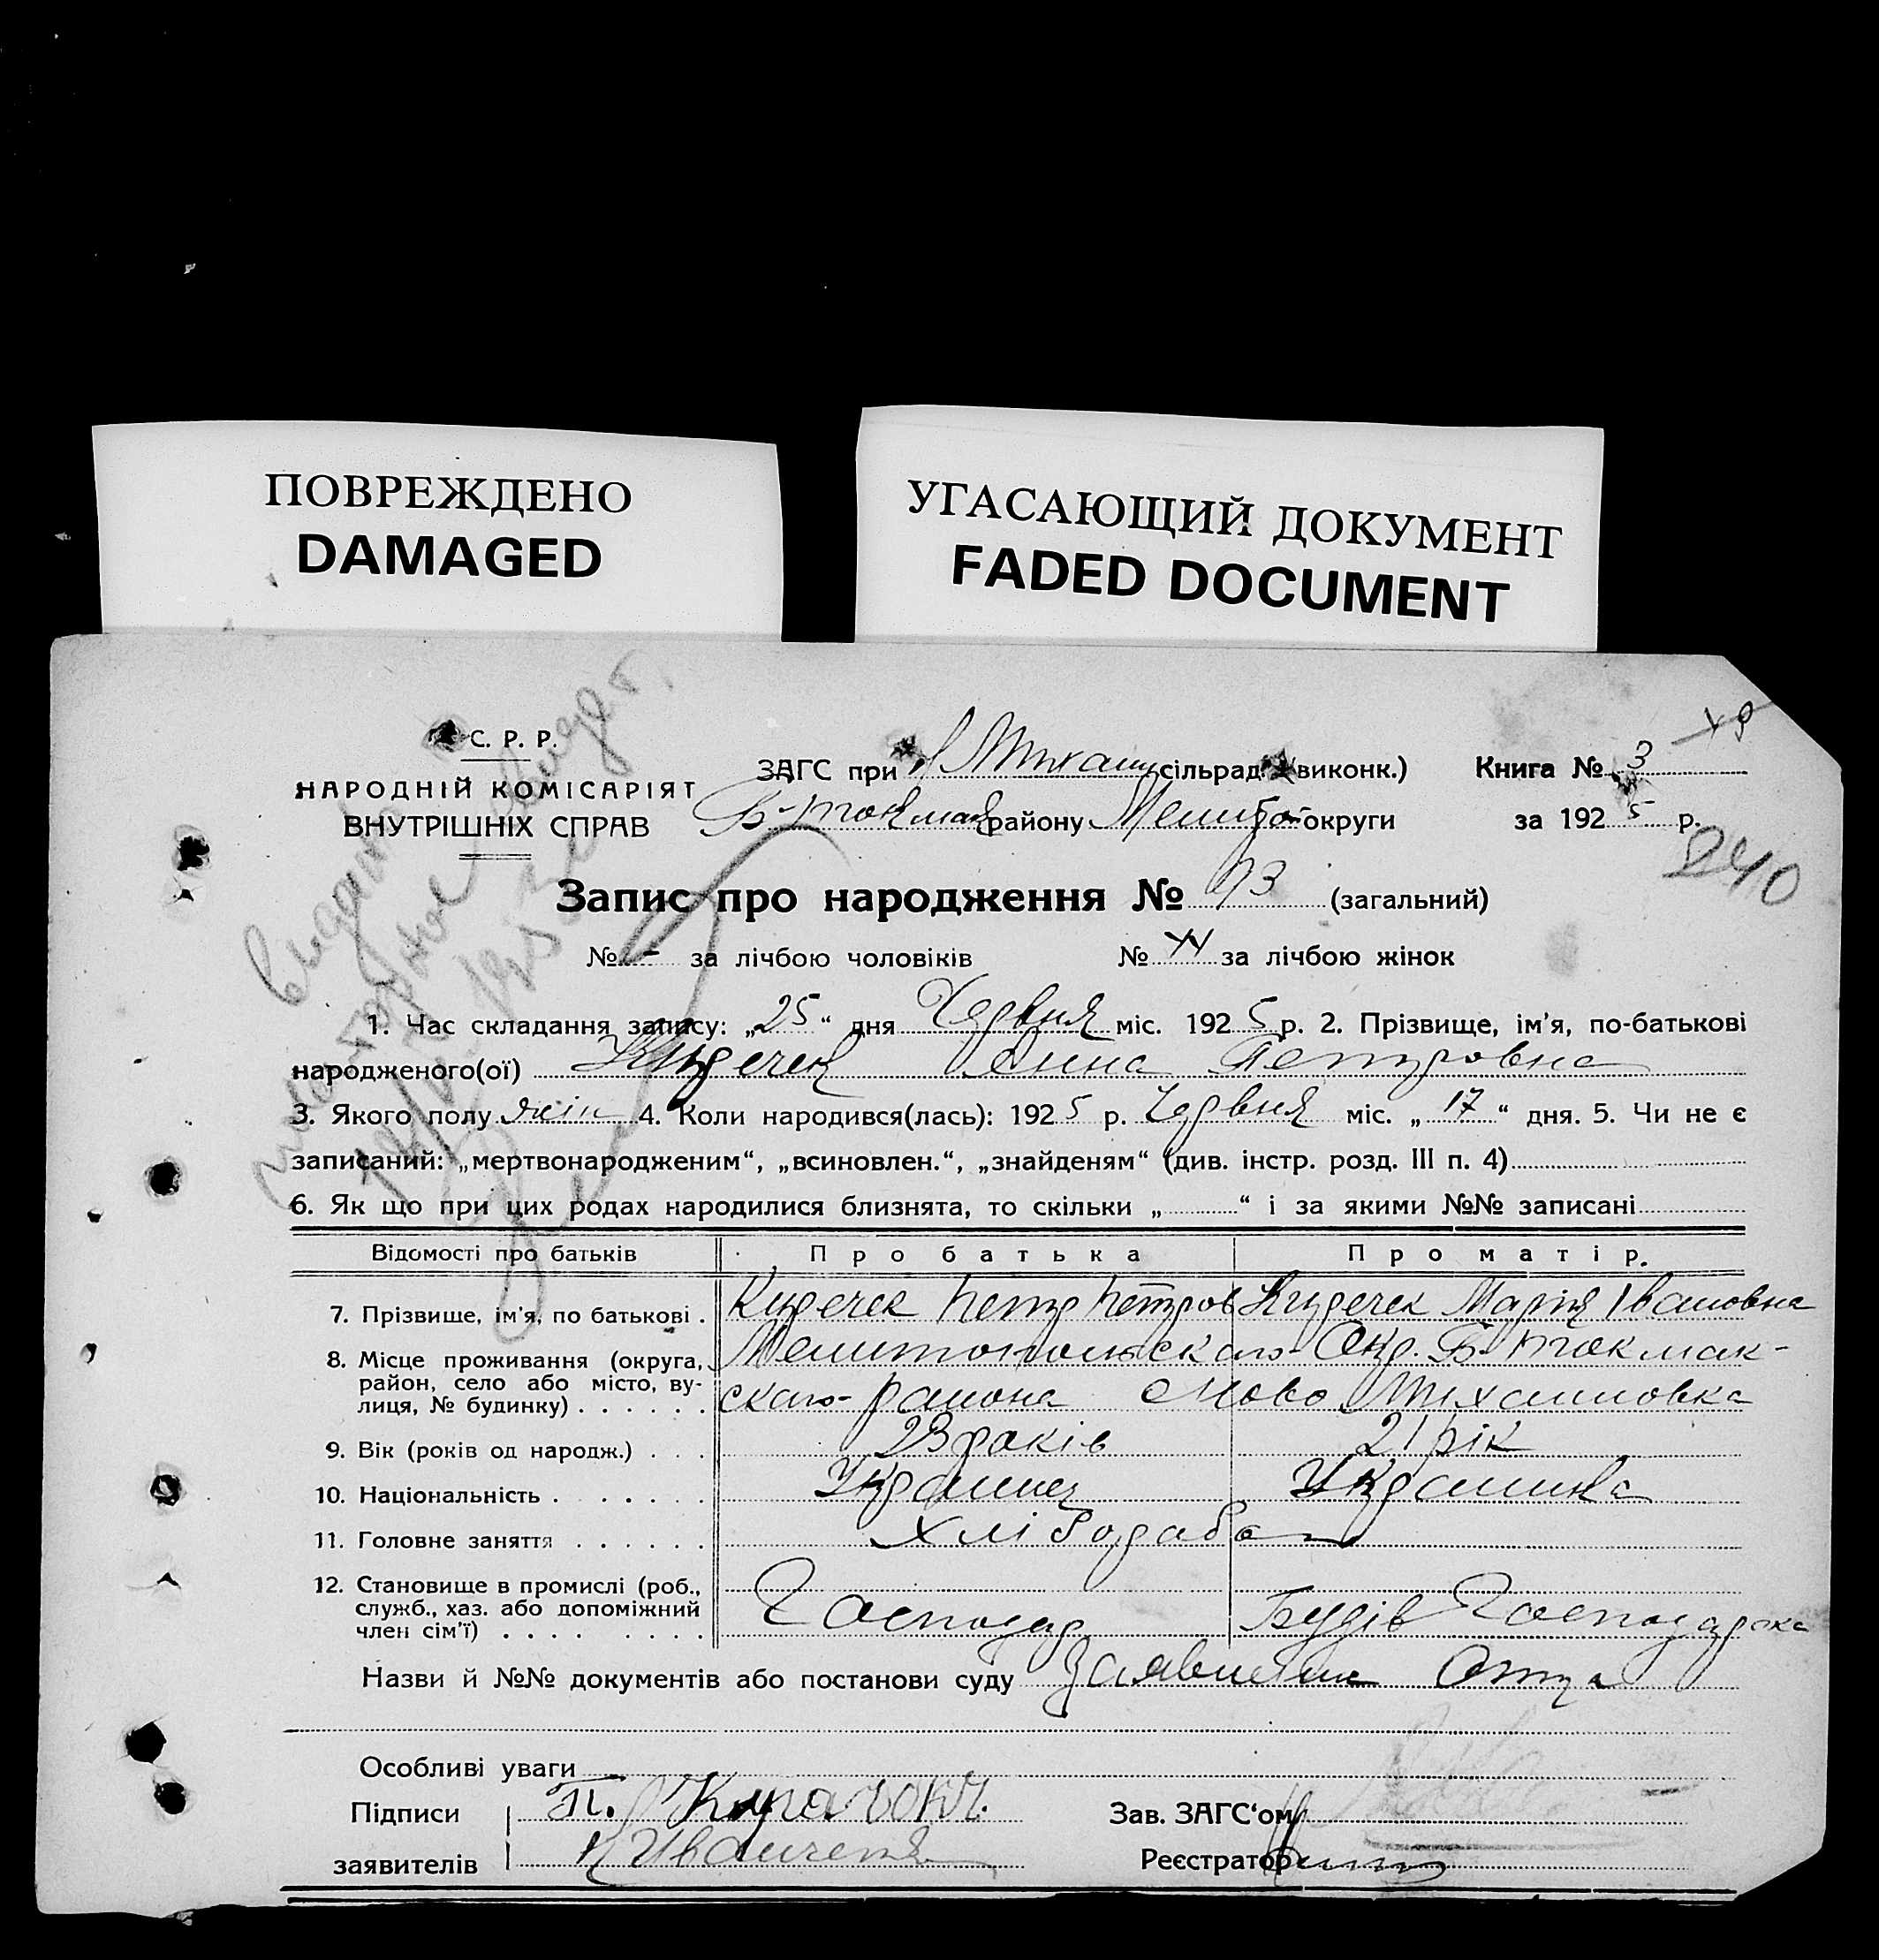 ПОВРЕЖДЕНО
DAMAGED
УГАСАЮЩИЙ ДОКУМЕНТ
FADED DOCUMENT
С. Р. Р.
НАРОДНІЙ КОМІСАРІЯТ
ВНУТРІШНІХ СПРАВ
ЗАГС при сільрад. виконк.) Книга № 3
Б-Токмак району Мелитоп округи за 1925 р.
240
Запис про народження № 93 (загальний)
№ - за лічбою чоловіків № 44 за лічбою жінок
1. Час складання запису: „25“ дня Червня міс. 1925 р. 2. Прізвище, ім'я, по-батькові
народженого(ої) Анна Петровна
3. Якого полу жін 4. Коли народився(лась): 1925 р. Червня міс. „17“ дня. 5. Чи не є
записаний: „мертвонародженим“, „всиновлен.“, „знайденям“ (див. інстр. розд. III п. 4)
6. Як що при цих родах народилися близнята, то скільки „ “ і за якими №№ записані
Відомості про батьків Про батька Про матір.
7. Прізвище, ім'я, по батькові . Петр Петров Марія Івановна
8. Місце проживання (округа, район, село або місто, вулиця, № будинку) Мелитопольскаго Окр. Б-Токмак-
скаго района Ново Михаиловка
9. Вік (років од народж.) . . . 23 років 21 рік
10. Національність . . . . . . Украинец Украинка
11. Головне заняття . . . . . . Хліборобст
12. Становище в промислі (роб., служб., хаз. або допоміжний член сім'ї) Господар Господарка
Назви й №№ документів або постанови суду Заявление Отца
Особливі уваги
Підписи П.
заявителів
Зав. ЗАГС'ом
Реєстратор